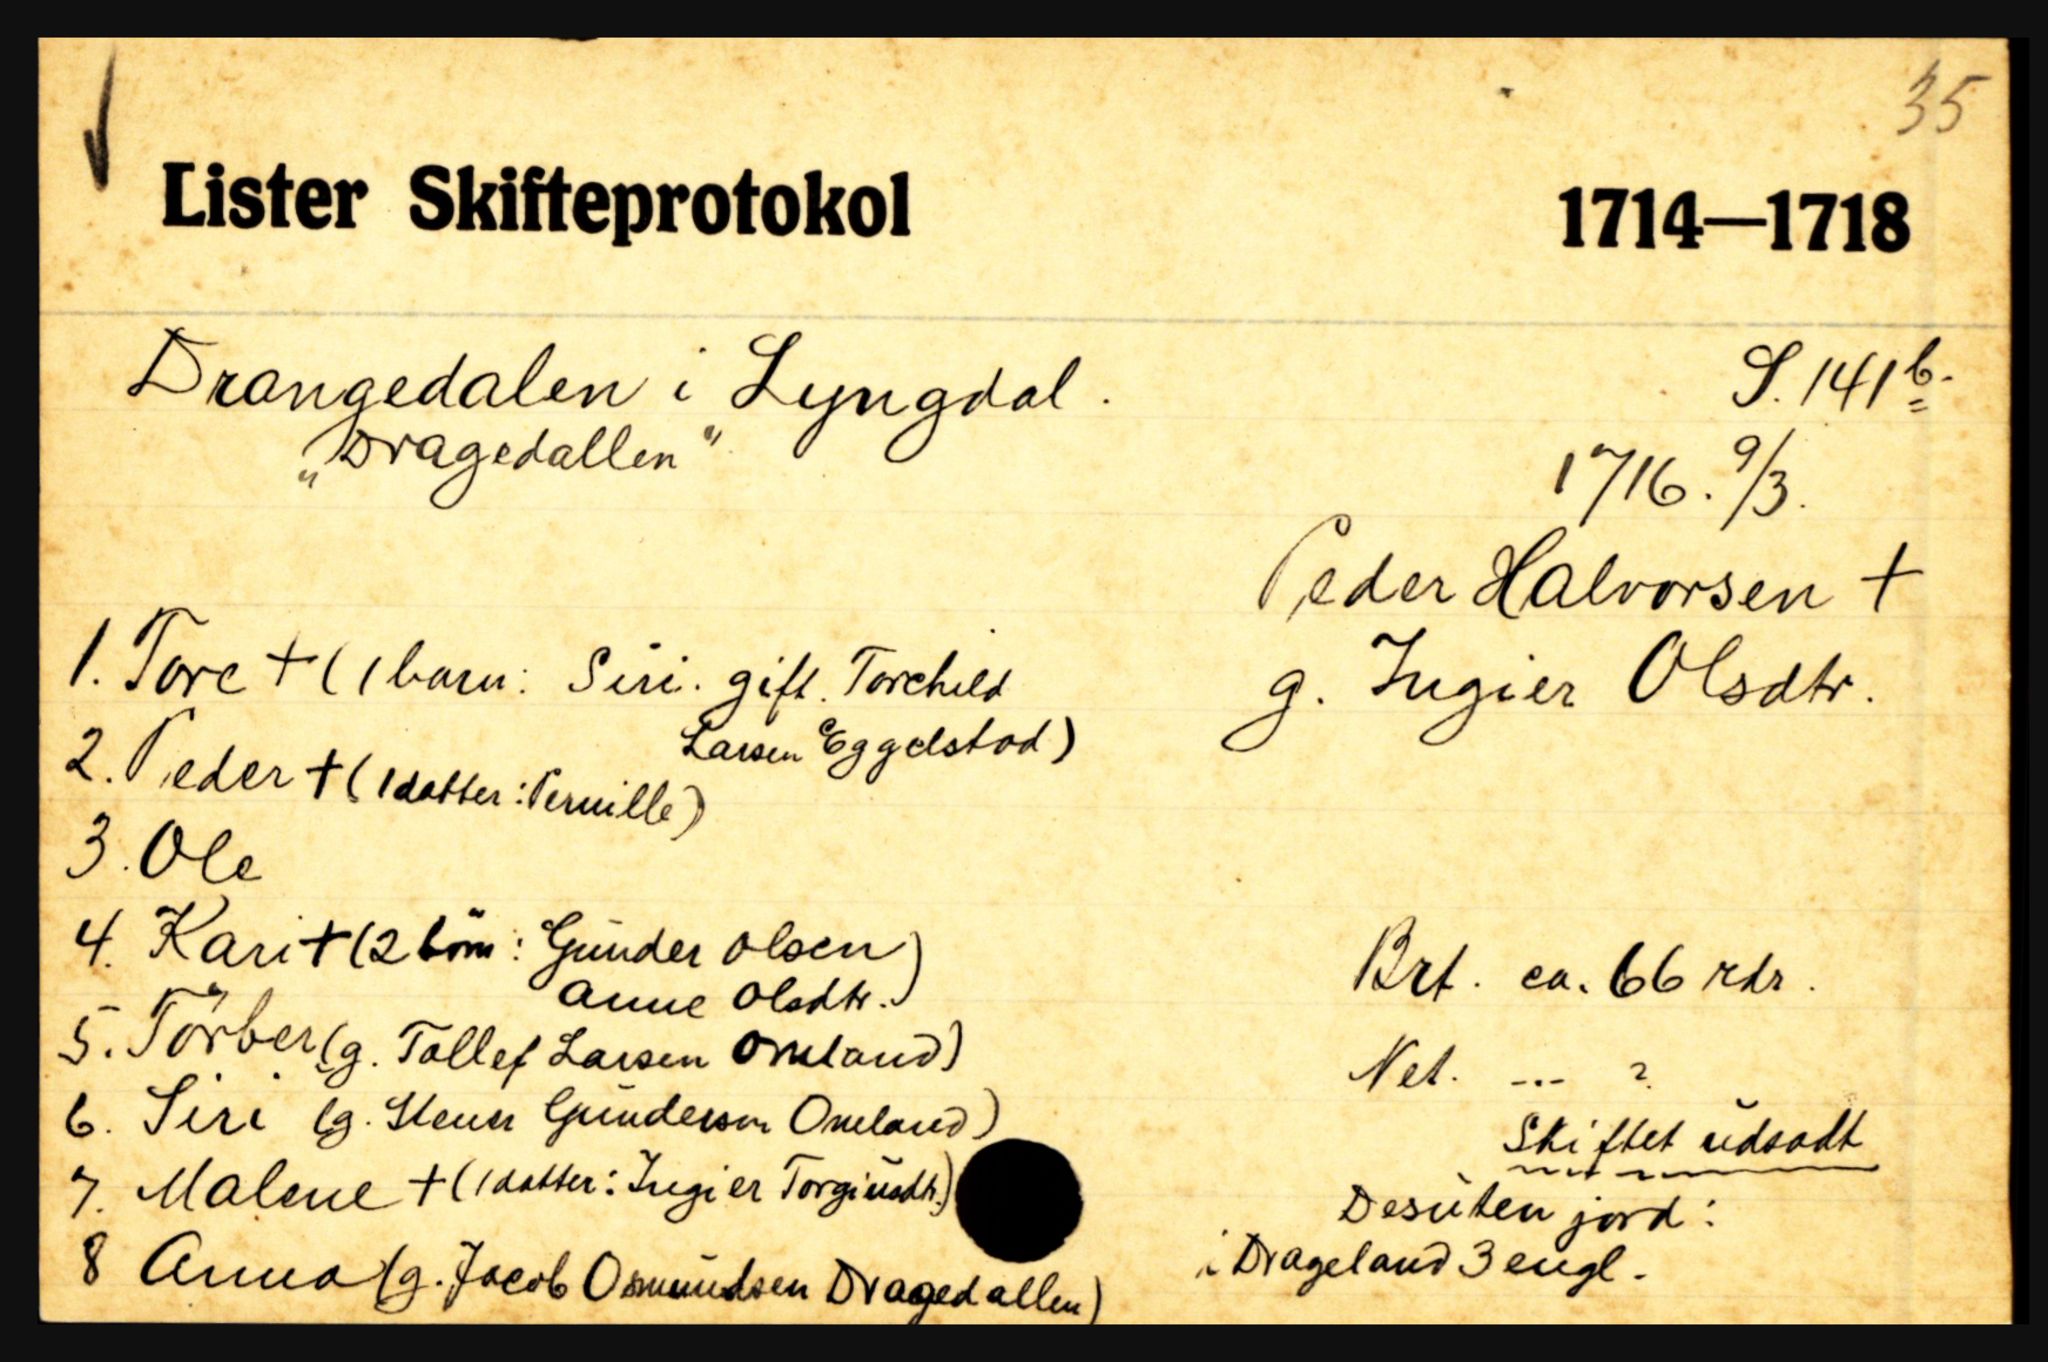 35
Lister Skifteprotokol 1714—1718
Drangedalen i Lyngdal.
S. 141b.
„Dragedallen"
1716. 9/3.
Peder Halvorsen +
g. Ingier Olsdtr.
1. Tore + (1 barn: Siri. gift. Torchild
Larsen Eggelstad)
2. Peder + (1 datter: Pernille)
3. Ole
4. Kari + (2 börn: Gunder Olsen
Anne Olsdtr.)
5. Törber (g. Tollef Larsen Omland)
6. Siri (g. Stener Gundersen Omeland)
7. Malene + (1 datter: Ingier Torgiusdtr.)
8 Anna (g. Jacob Osmundsen Dragedallen)
Brt. ca. 66 rdr.
Net. --- ?
Skiftet udsadt
Desuten jord:
i Drageland 3 engl.